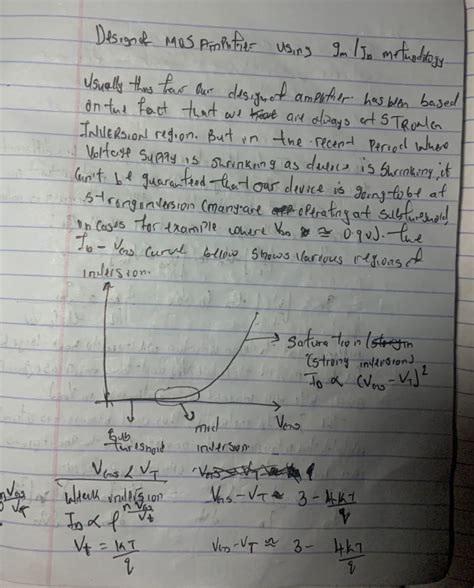 Design of MOS Amplifier using gm/ID methodology
Usually thus far our design of amplifier has been based
on the fact that we are always at STRONG
INVERSION region. But in the recent period where
Voltage Supply is shrinking as device is shrinking, it
can't be guaranteed that our device is going to be at
strong inversion (many are operating at subthreshold
in cases for example where VDD ≅ 0.9V). The
ID - VGS curve below shows various regions of
inversion.
Saturation (
(strong inversion)
ID ∝ (VGS - VT)²
VGS
Sub threshold
mid inversion
VGS < VT
Weak inversion
VGS - VT ≈ 3 - 4kT/q
ID ∝
Vt = kT/q
VGS - VT ≈ 3 - 4kT/q